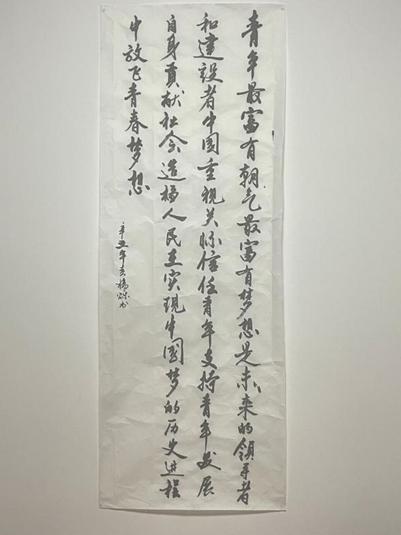 青年最富有朝气最富有梦想是未来的领导者
和建设者中国重视关怀信任青年支持青年发展
自身贡献社会造福人民在实现中国梦的历史进程
中放飞青春梦想
辛丑年